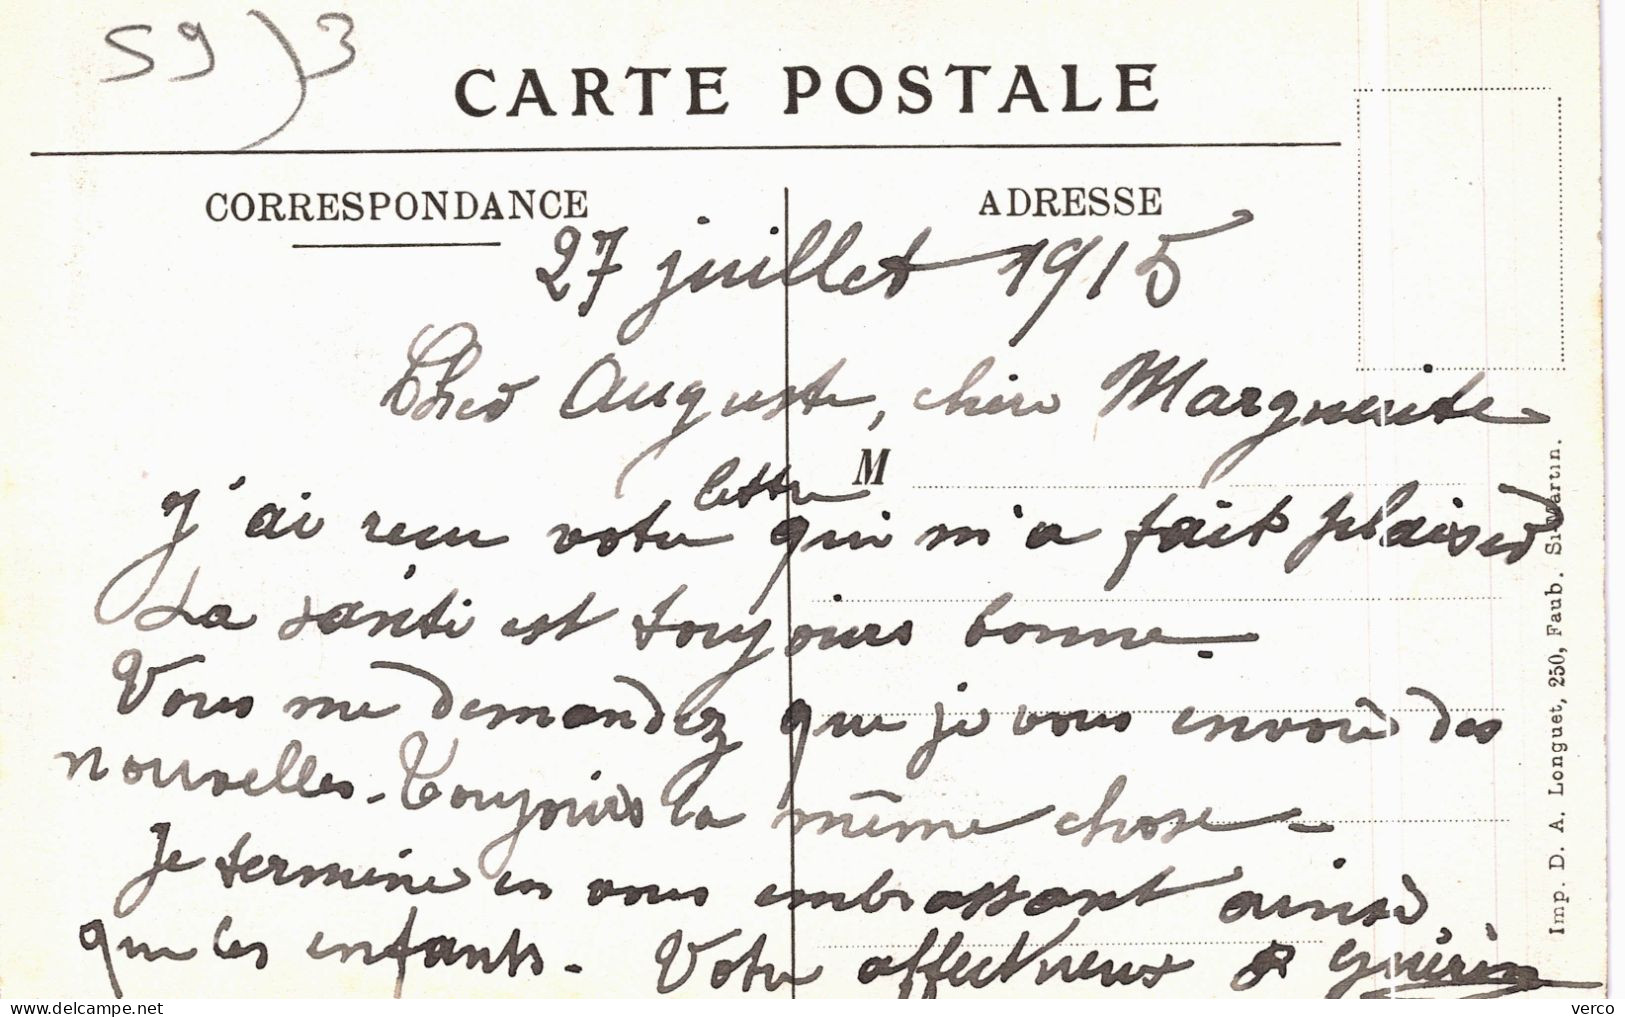 59 ) 3
CARTE POSTALE
CORRESPONDANCE
ADRESSE
27 juillet 1915
Cher Auguste, chère Marguerite
M
J'ai reçu votre lettre qui m'a fait plaisir
La santé est toujours bonne.
Vous me demandez que je vous envoie des
nouvelles. Toujours la même chose.
Je termine en vous embrassant ainsi
que les enfants. Votre affectueux Guérin
Imp. D. A. Longuet, 250, Faub. St Martin.
delcampe.net
verco